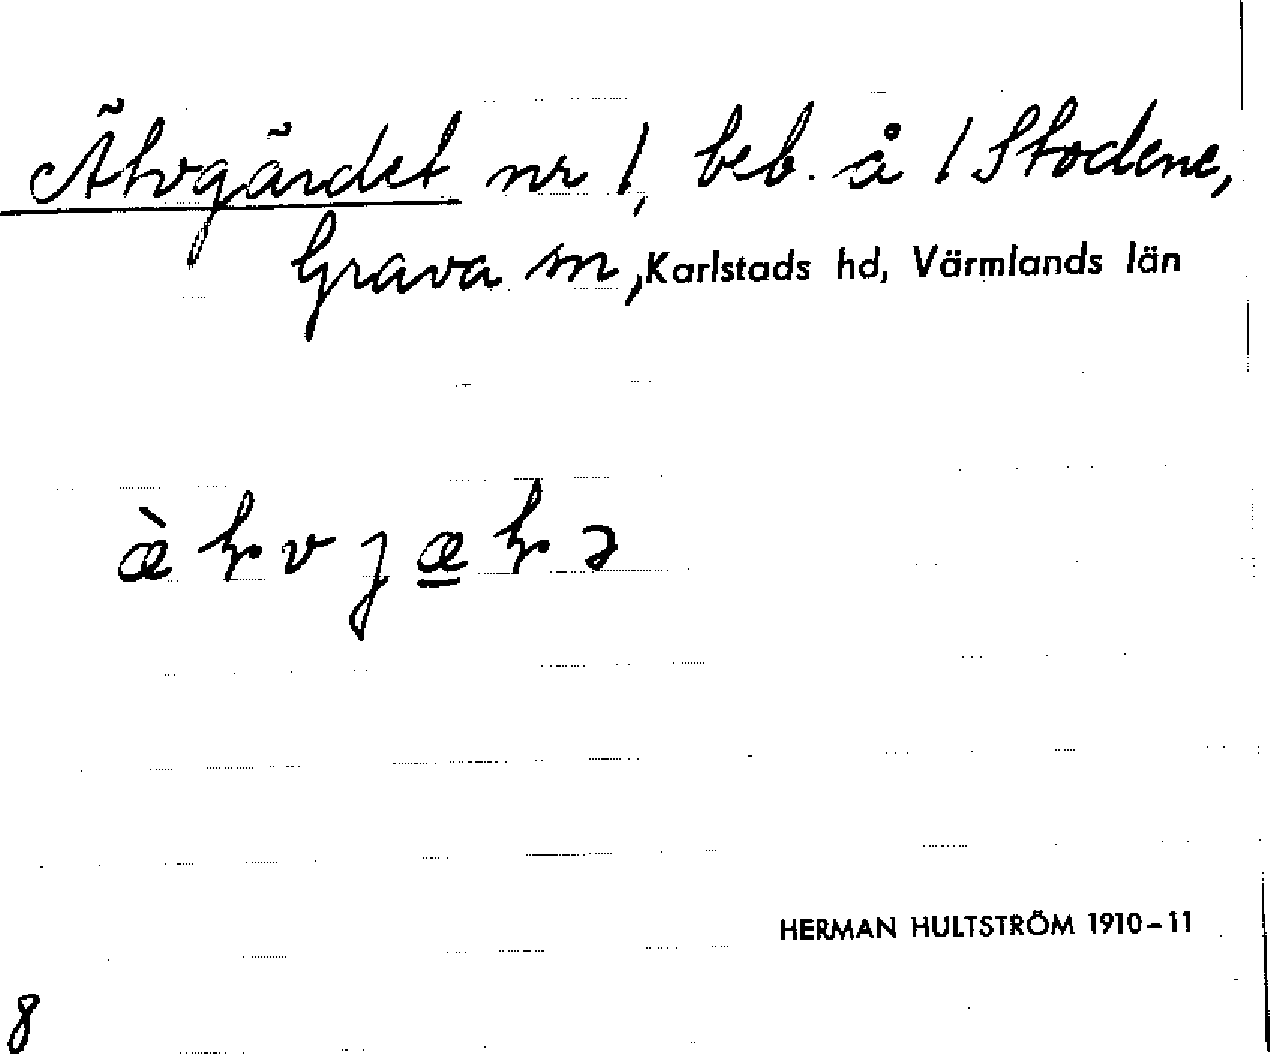 Älvgärdet nr 1, beb. å 1 Stodene,
Grava sn, Karlstads hd, Värmlands län
HERMAN HULTSTRÖM 1910–11
8